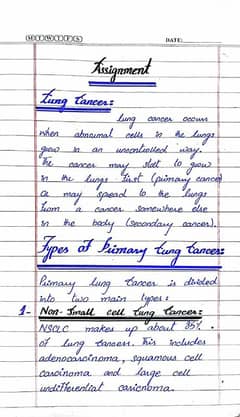 DATE:
Assignment
Lung Cancer:
Lung cancer occurs
when abnormal cells in the lungs
grow in an uncontrolled way.
The cancer may start to grow
in the lungs first (primary cancer)
or may spread to the lungs
from a cancer somewhere else
in the body (secondary cancer).
Types of Primary Lung Cancer:
Primary lung cancer is divided
into two main types:
1- Non-Small cell Lung Cancer:
NSCLC makes up about 85%
of lung cancers. This includes
adenocarcinoma, squamous cell
carcinoma and large cell
undifferential carcinoma.